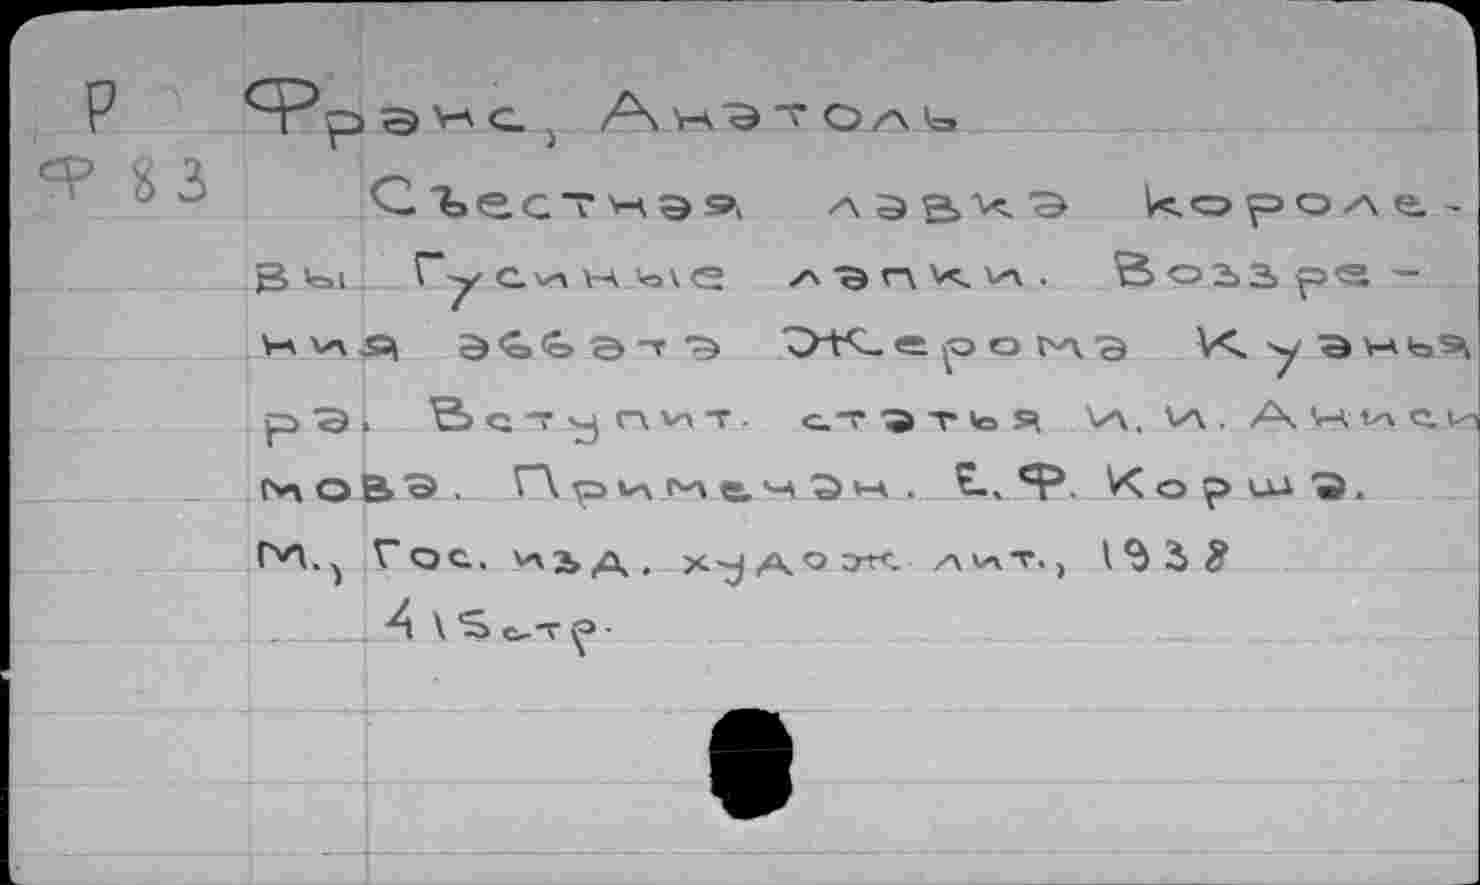 Р Франс, Анатоль
Ф 83 Съестная лавка короле-
вы Гусиные лапки. Воззре-
ния аббата Жерома Куанья
ра. Вступит. статья И. И. Аниси
мова. Примечан. Е. Ф. Корша.
М., Гос. изд. худож. лит., 1938
415 стр.